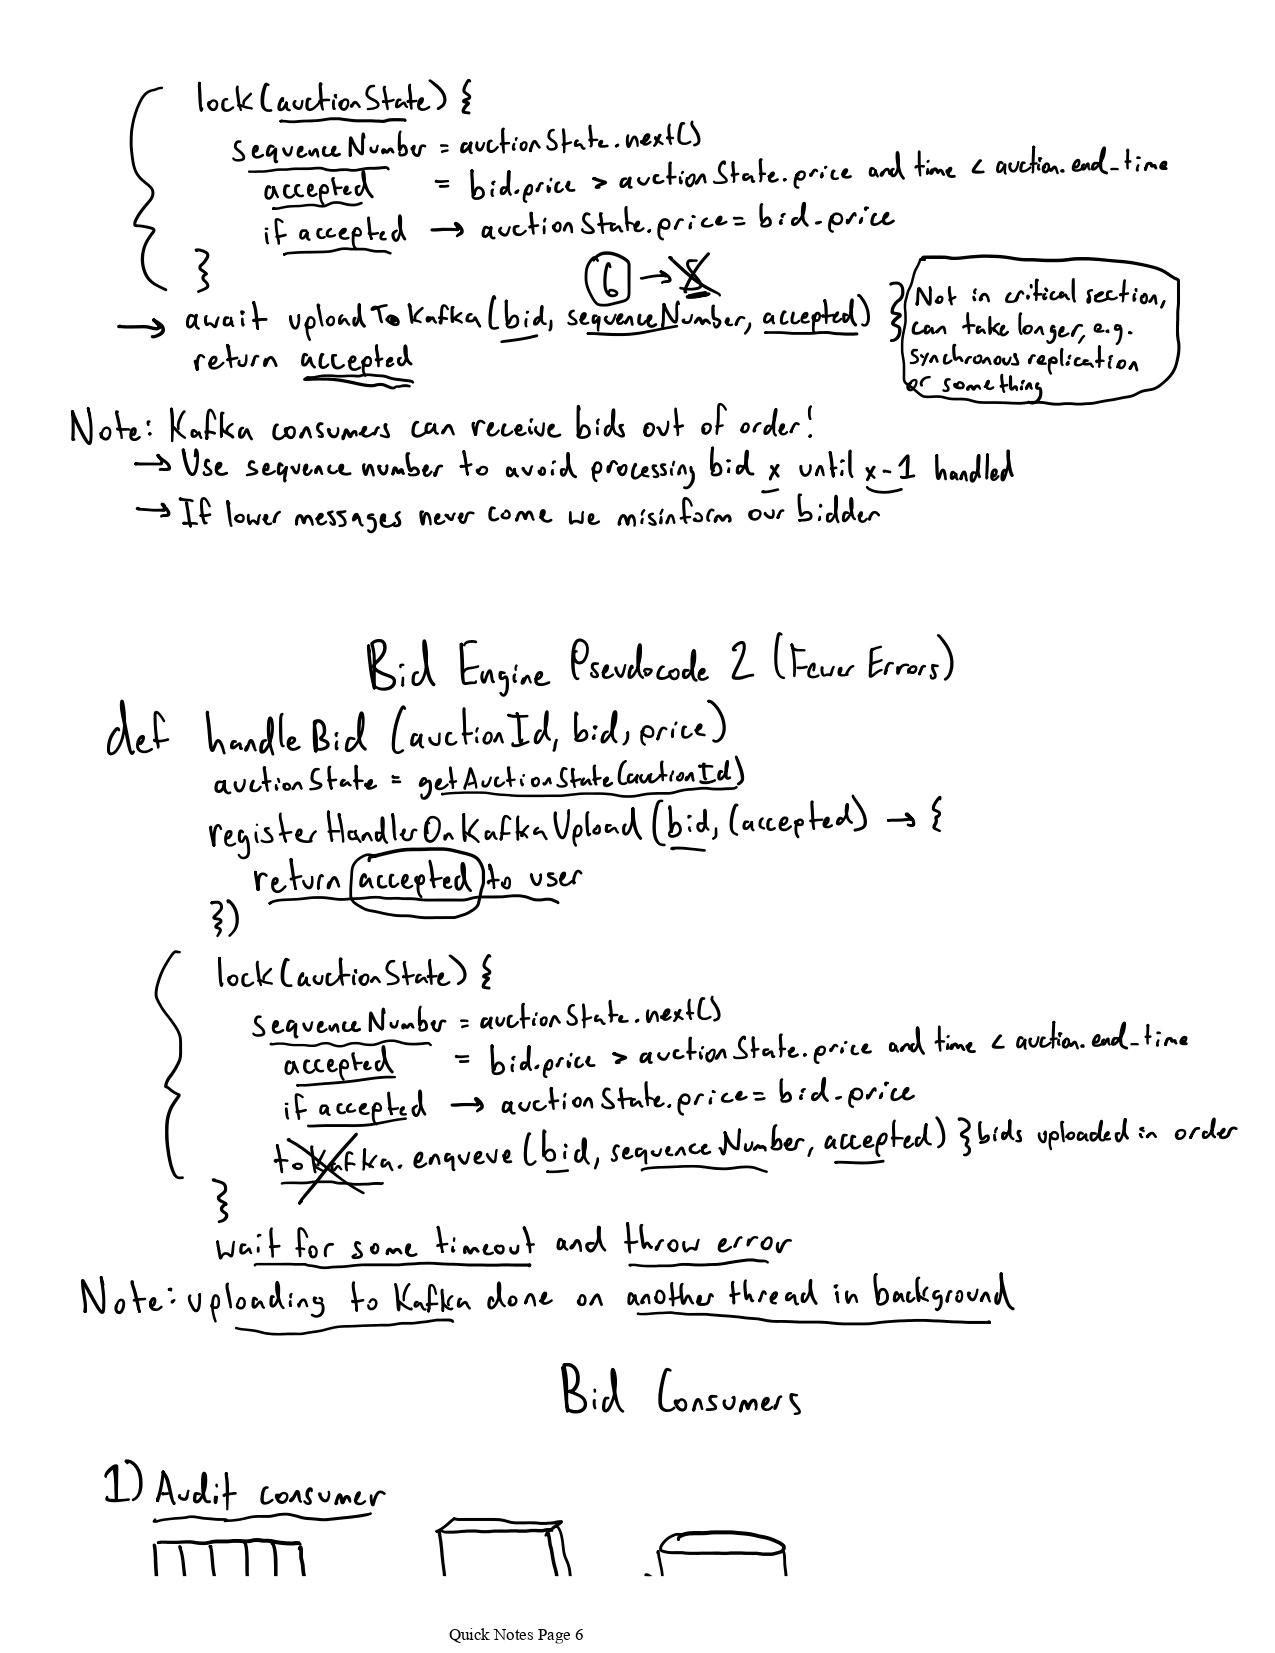 lock(auctionState) {
sequenceNumber = auctionState.next()
accepted = bid.price > auctionState.price and time < auction.end_time
if accepted → auctionState.price = bid.price
}
6 → 5
→ await uploadToKafka(bid, sequenceNumber, accepted) }
return accepted
Not in critical section,
can take longer, e.g.
synchronous replication
or something
Note: Kafka consumers can receive bids out of order!
→ Use sequence number to avoid processing bid x until x-1 handled
→ If lower messages never come we misinform our bidder
Bid Engine Pseudocode 2 (Fewer Errors)
def handleBid (auctionId, bid, price)
auctionState = getAuctionState(auctionId)
registerHandlerOnKafkaUpload (bid, (accepted) → {
return accepted to user
})
lock(auctionState) {
sequenceNumber = auctionState.next()
accepted = bid.price > auctionState.price and time < auction.end_time
if accepted → auctionState.price = bid.price
toKafka.enqueue (bid, sequenceNumber, accepted) } bids uploaded in order
}
wait for some timeout and throw error
Note: uploading to Kafka done on another thread in background
Bid Consumers
1) Audit consumer
Quick Notes Page 6